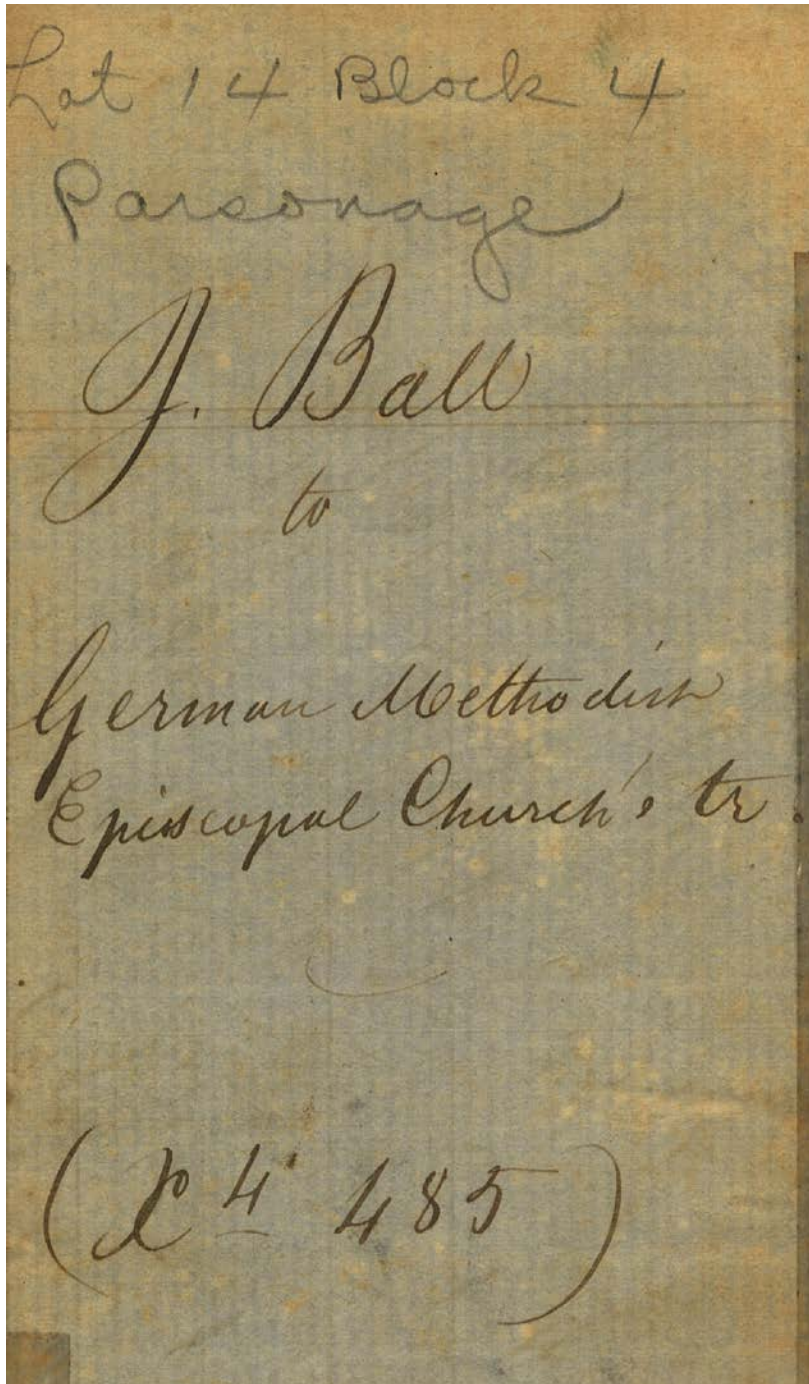 Lot 14 Block 4
Parsonage
J. Ball
to
German Methodist
Episcopal Church's tr.
( 4 485 )